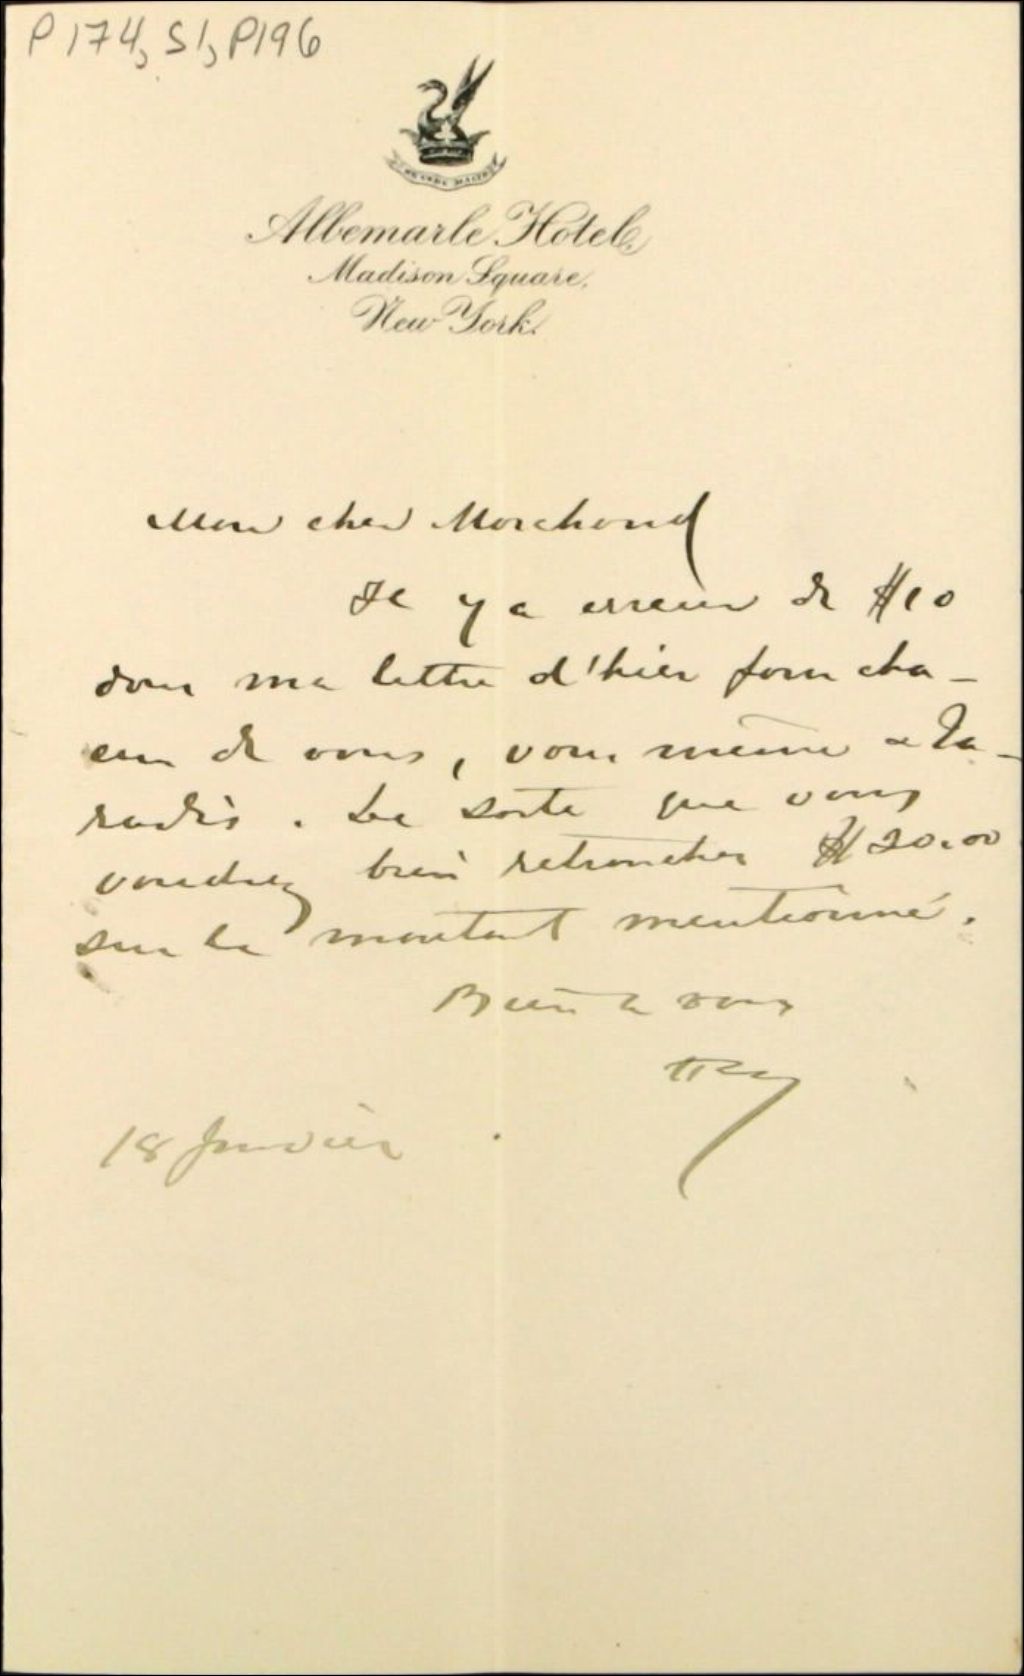 P174, S1, P196
Albemarle Hotel,
Madison Square,
New York.
Mon cher Marchand
Il y a erreur de $10
dans ma lettre d'hier pour cha-
cun de vous, vous même & Pa-
radis. De sorte que vous
voudrez bien retrancher $20.00
sur le montant mentionné.
Bien à vous
18 Janvier